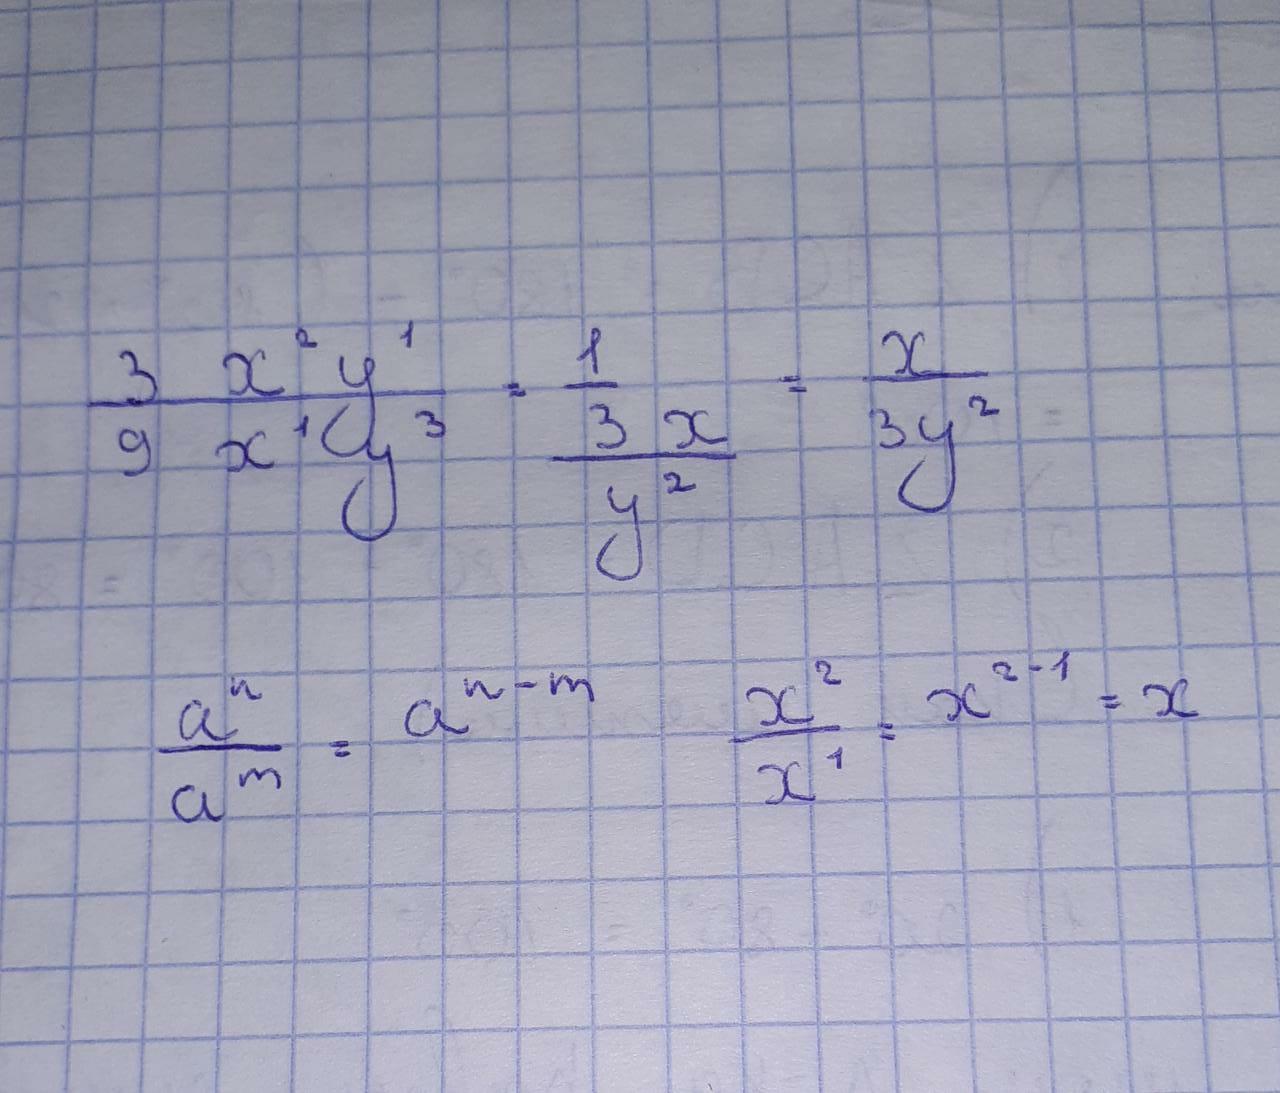 3 x² y¹ / 9 x¹ y³ = 1/3 x / y² = x / 3y²
aⁿ / aᵐ = aⁿ⁻ᵐ x² / x¹ = x²⁻¹ = x